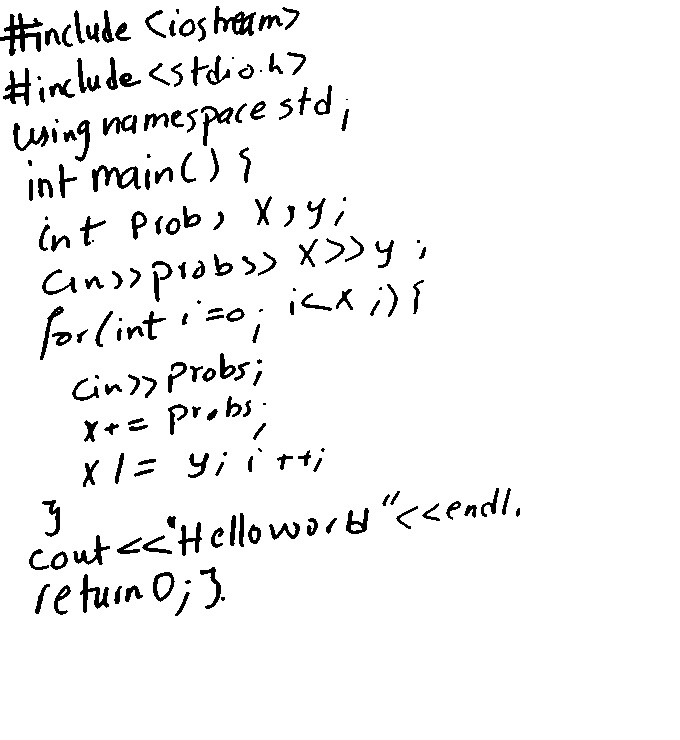 #include <iostream>
#include <stdio.h>
using namespace std;
int main() {
int prob, x, y;
cin>>probs>> x>>y;
for(int i=0; i<x;) {
cin>>probs;
x+= probs;
x /= y; i++;
}
cout<<"Helloworld"<<endl.
return 0; }.